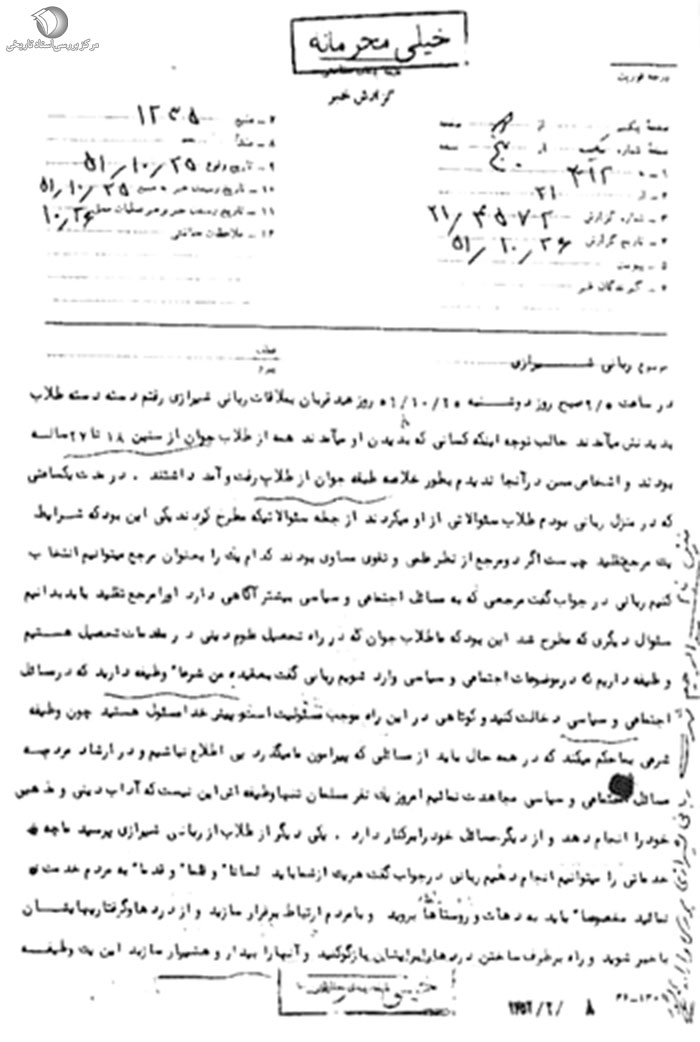 مرکز بررسی اسناد تاریخی
خیلی محرمانه
درجه فوریت
گزارش خبر
صفحه یکم از صفحه
نسخه شماره یک از نسخه
۱ - به ۳۱۲
۲ - از ۲۱
۳ - شماره گزارش ۲۱/۴۵۷۲
۴ - تاریخ گزارش ۵۱/۱۰/۲۶
۵ - پیوست
۶ - گیرندگان خبر
۷ - منبع ۱۲۳۵
۸ - منشأ
۹ - تاریخ وقوع ۵۱/۱۰/۲۵
۱۰ - تاریخ رسیدن خبر به منبع ۵۱/۱۰/۲۵
۱۱ - تاریخ رسیدن خبر به رهبر عملیات محل ۱۰/۲۶
۱۲ - ملاحظات حفاظتی
موضوع ربانی شیرازی
عطف
پیرو
در ساعت ۹/۵ صبح روز دوشنبه ۵۱/۱۰/۲۵ روز عید قربان بملاقات ربانی شیرازی رفتم دسته دسته طلاب
بدیدنش میآمدند جالب توجه اینکه کسانی که بدیدن او میآمدند همه از طلاب جوان از سنین ۱۸ تا ۲۷ ساله
بودند و اشخاص مسن در آنجا ندیدم بطور خلاصه طبقه جوان از طلاب رفت و آمد داشتند . در مدت یکساعتی
که در منزل ربانی بودم طلاب سئوالاتی از او میکردند از جمله سئوالاتیکه مطرح کردند یکی این بود که شرایط
یک مرجع تقلید چیست اگر دو مرجع از نظر علمی و تقوی مساوی بودند کدام یک را بعنوان مرجع میتوانیم انتخاب
کنیم ربانی در جواب گفت مرجعی که به مسائل اجتماعی و سیاسی بیشتر آگاهی دارد اورا مرجع تقلید باید بدانیم
سئوال دیگری که مطرح شد این بود که ما طلاب جوان که در راه تحصیل علوم دینی در مقدمات تحصیل هستیم
وظیفه داریم که در موضوعات اجتماعی و سیاسی وارد شویم ربانی گفت بعقیده من شرعا" وظیفه دارید که در مسائل
اجتماعی و سیاسی دخالت کنید و کوتاهی در این راه موجب مسئولیت است و پیش خدا مسئول هستید چون وظیفه
شرعی بما حکم میکند که در همه حال باید از مسائلی که پیرامون ما میگذرد بی اطلاع نباشیم و در ارشاد مردم به
مسائل اجتماعی و سیاسی مجاهدت نمائیم امروز یک نفر مسلمان تنها وظیفه اش این نیست که آداب دینی و مذهبی
خود را انجام دهد و از دیگر مسائل خود را برکنار دارد . یکی دیگر از طلاب از ربانی شیرازی پرسید ما چه
خدماتی را میتوانیم انجام دهیم ربانی در جواب گفت هر یک از شما باید لسانا" و قلما" و قدما" به مردم خدمت
نمائید مخصوصا" باید به دهات و روستاها بروید و با مردم ارتباط برقرار سازید و از دردها و گرفتاریهایشان
با خبر شوید و راه برطرف ساختن دردها را برایشان بازگو کنید و آنها را بیدار و هشیار سازید این یک وظیفه
خیلی محرمانه